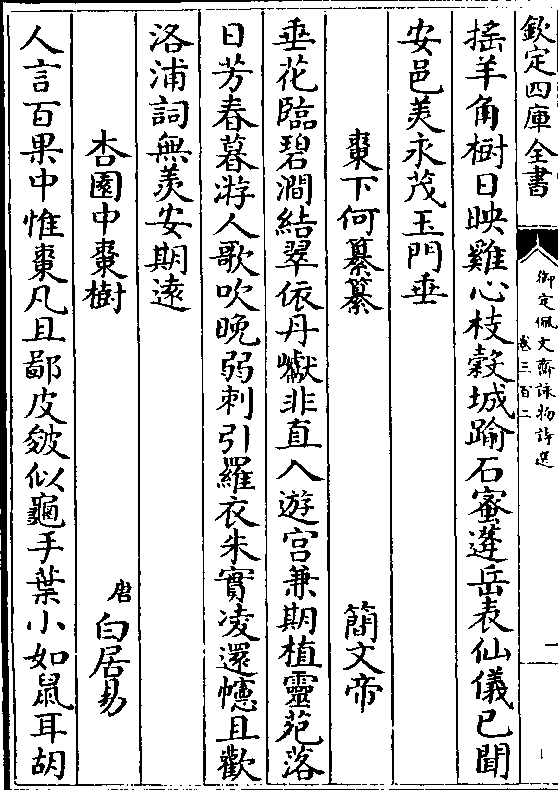 欽定四庫全書
御定佩文齋詠物詩選
卷三百二
一
揺羊角樹日映雞心枝縠城踰石蜜蓬岳表仙儀已聞
安邑美永茂玉門垂
棗下何纂纂 簡文帝
垂花臨碧澗結翠依丹巘非直入遊宫兼期植靈苑落
日芳春暮游人歌吹晚弱刺引羅衣朱實凌還幰且歡
洛浦詞無羡安期逺
杏園中棗樹 唐白居易
人言百果中惟棗凡且鄙皮皴似龜手葉小如鼠耳胡